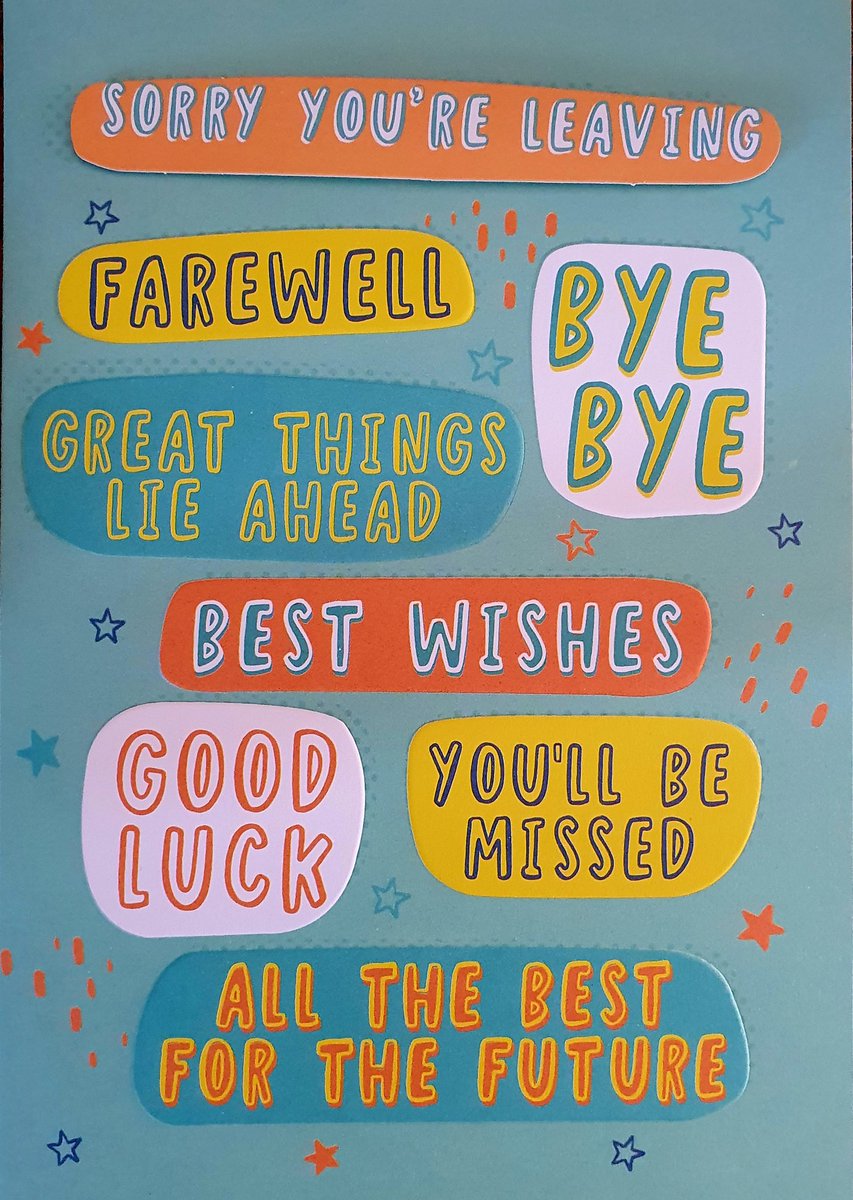 SORRY YOU'RE LEAVING
FAREWELL
BYE
BYE
GREAT THINGS
LIE AHEAD
BEST WISHES
GOOD
LUCK
YOU'LL BE
MISSED
ALL THE BEST
FOR THE FUTURE